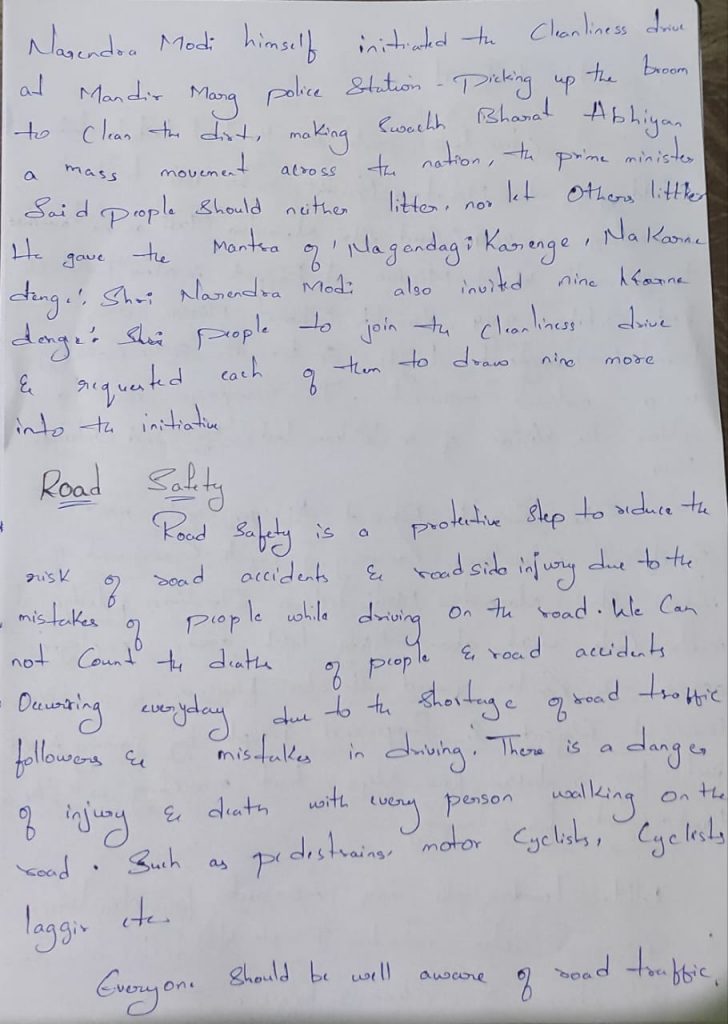 Narendra Modi himself initiated the Cleanliness drive
at Mandir Marg police Station - Picking up the broom
to Clean the dirt, making Swachh Bharat Abhiyan
a mass movement across the nation, the prime minister
Said people Should neither litter, nor let Others litter
He gave the Mantra of 'Nagandagi Karenge, Na Karne
denge'. Shri Narendra Modi also invited nine
denge'. Shri people to join the Cleanliness drive
& requested each of them to draw nine more
into the initiative
Road Safety
Road Safety is a protective Step to reduce the
risk of road accidents & roadside injury due to the
mistakes of people while driving on the road. We Can
not Count the deaths of people & road accidents
Occurring everyday due to the Shortage of road traffic
followers & mistakes in driving. There is a danger
of injury & death with every person walking on the
road. Such as pedestrains, motor Cyclists, Cyclists
laggir etc.
Everyone Should be well aware of road traffic,